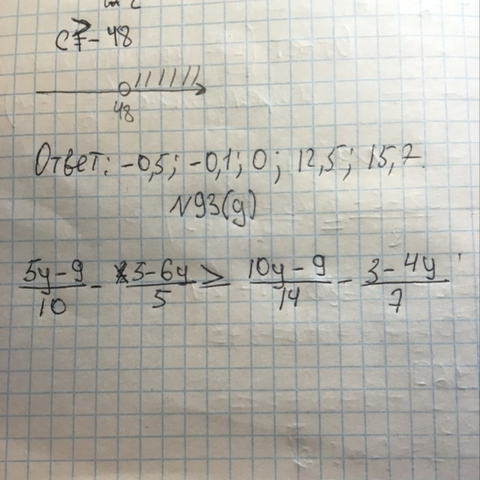 c > -48
48
Ответ: -0,5; -0,1; 0; 12,5; 15,7.
N93(g)
(5y-9)/10 - (5-6y)/5 > (10y-9)/14 - (3-4y)/7